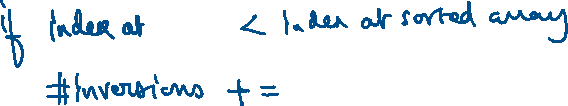 if index at < index at sorted array
#inversions + =